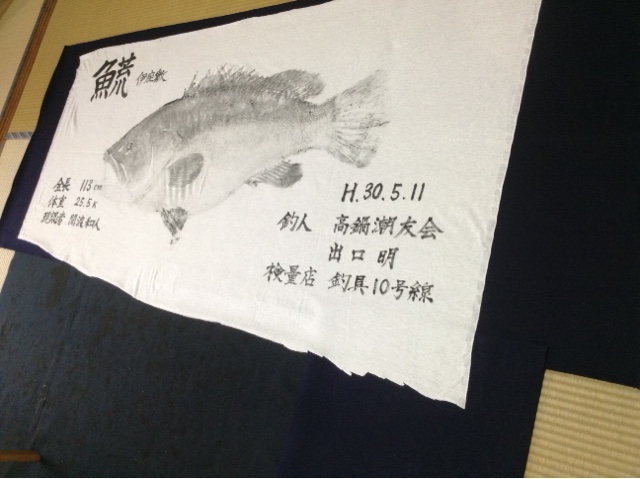 鯍
全長 113cm
体重 25.5K
現認者 関渡和人
H.30.5.11
釣人 高鍋潮友会
出口 明
検量店 釣具10号線